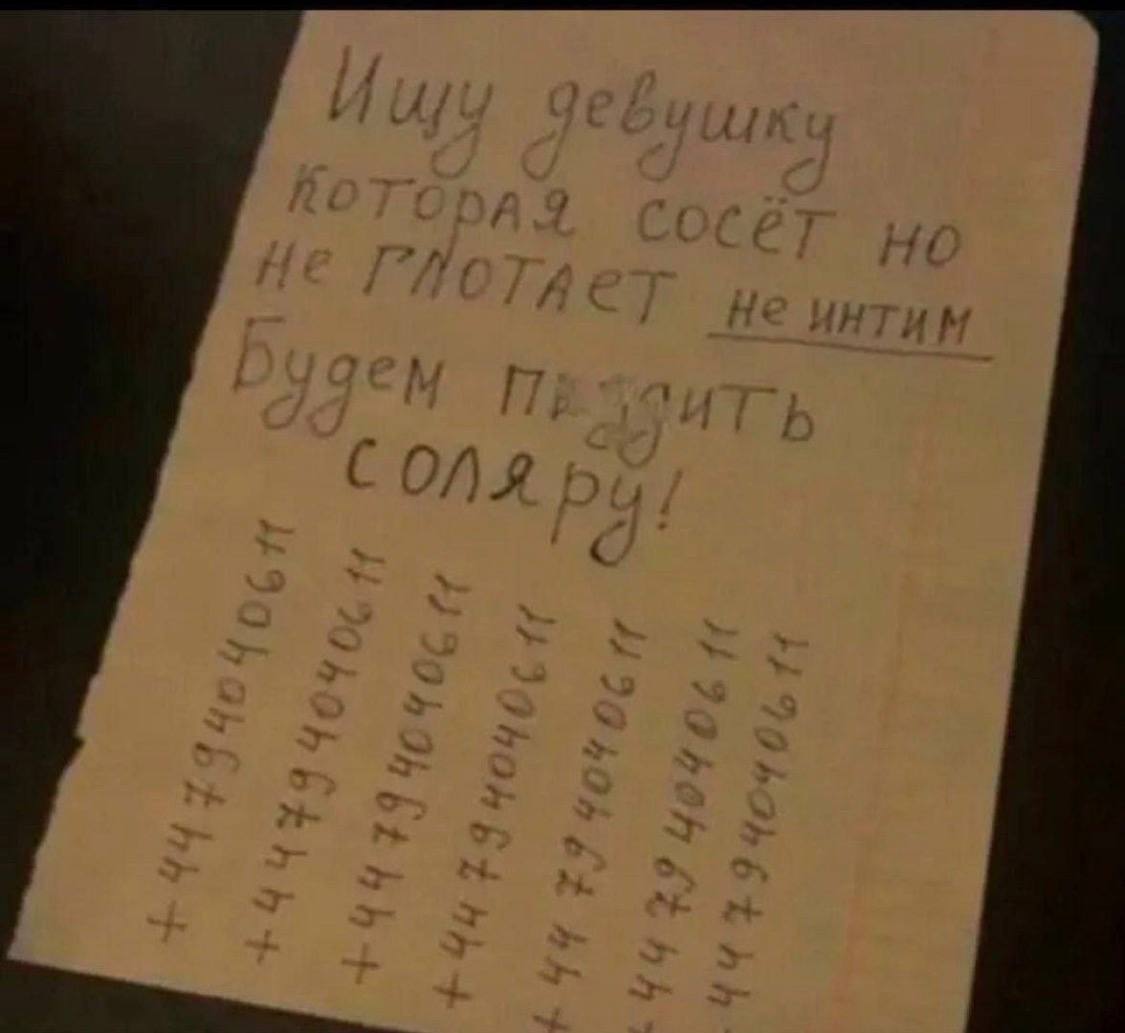 Ищу девушку
которая сосёт но
не глотает не интим
Будем
соляру!
+44794040611
+44794040611
+44794040611
+44794040611
+44794040611
+44794040611
44794040611